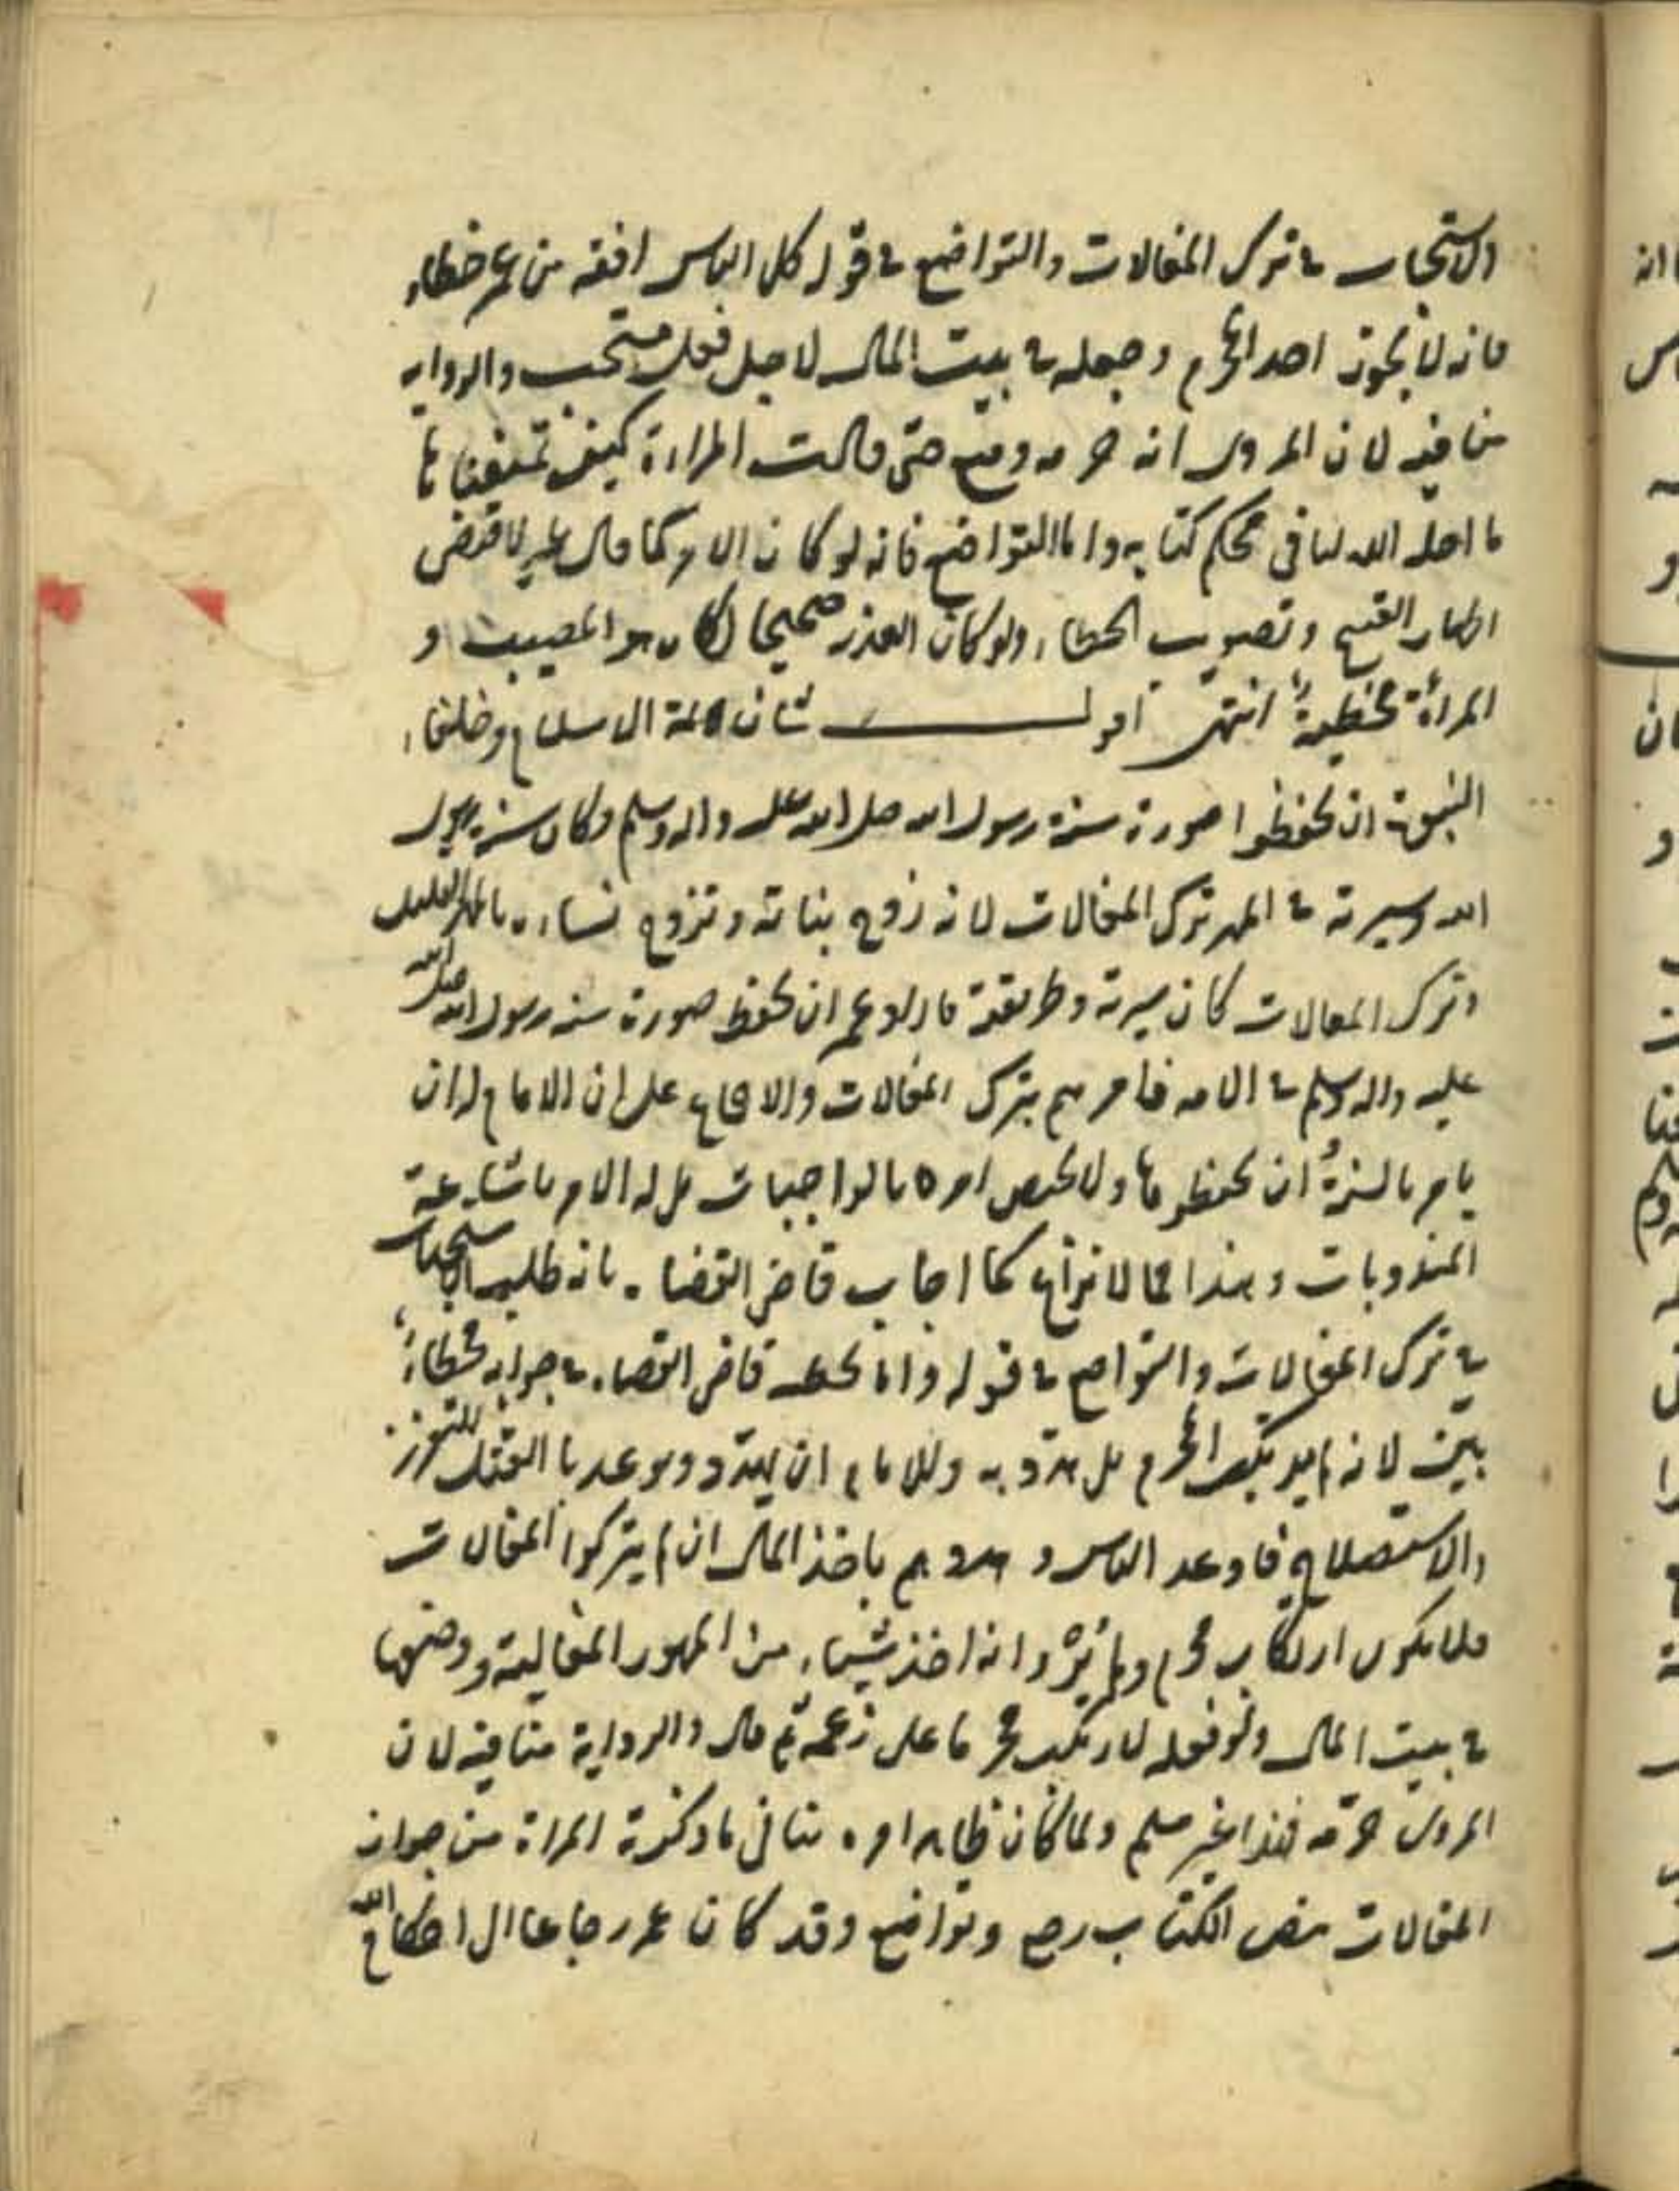 الاستحباب في ترك المغالات والتواضع في قوله كل الناس افقه من عمر خطاء
فانه لا يجوز اخذ المحرم وجعله في بيت المال لاجل فعل مستحب والرواية
منافية لان المروى انه حرمه ومنع حتى قالت المراءة كيف تمنعنا
ما احله الله لنا فى محكم كتابه واما التواضع فانه لو كان الامر كما قال لاقتضى
اظهار القبيح وتصويب الخطاء ولو كان العذر صحيحا لكان هو المصيب و
المرأة مخطية انتهى اقول شان ائمة الاسلام وخلفاء
النبوة ان يحفظوا صورة سنة رسول الله صلى الله عليه واله وسلم وكان سنة رسول
الله وسيرته في المهر ترك المغالات لانه زوج بناته وتزوج نساءه بالمهر القليل
وترك المغالات كان سيرته وطريقته فاراد عمر ان يحفظ صورة سنة رسول الله صلى الله
عليه واله وسلم في الامة فامرهم بترك المغالات والاجماع على ان الامام له ان
يامر بالسنة ان يحفظوها ولا يختص امره بالواجبات بل له الامر باشاعة
المندوبات وهذا مما لا نزاع كما اجاب قاضى القضاة بانه طلب الاستحباب
في ترك المغالات والتواضع في قوله واما تخطئة قاضى القضاة في جوابه فخطاء
بين لانه لم يرتكب المحرم بل هدد به وللامام ان يهدد ويوعد بالقتل للتعزير
والاستصلاح فاوعد الناس وهددهم باخذ المال ان لم يتركوا المغالات
فلا يكون ارتكاب محرم ولم يرو انه اخذ شيئاء من المهور المغالية ووضعها
في بيت المال ولو فعله لارتكب محرما على زعمه ثم قال والرواية منافية لان
المروى حرمه فهذا غير مسلم ولما كان ظاهر امره ينافى ما ذكرته المراة من جواز
المغالات بنص الكتاب رجع وتواضع وقد كان عمر رجاعا الى احكام الله